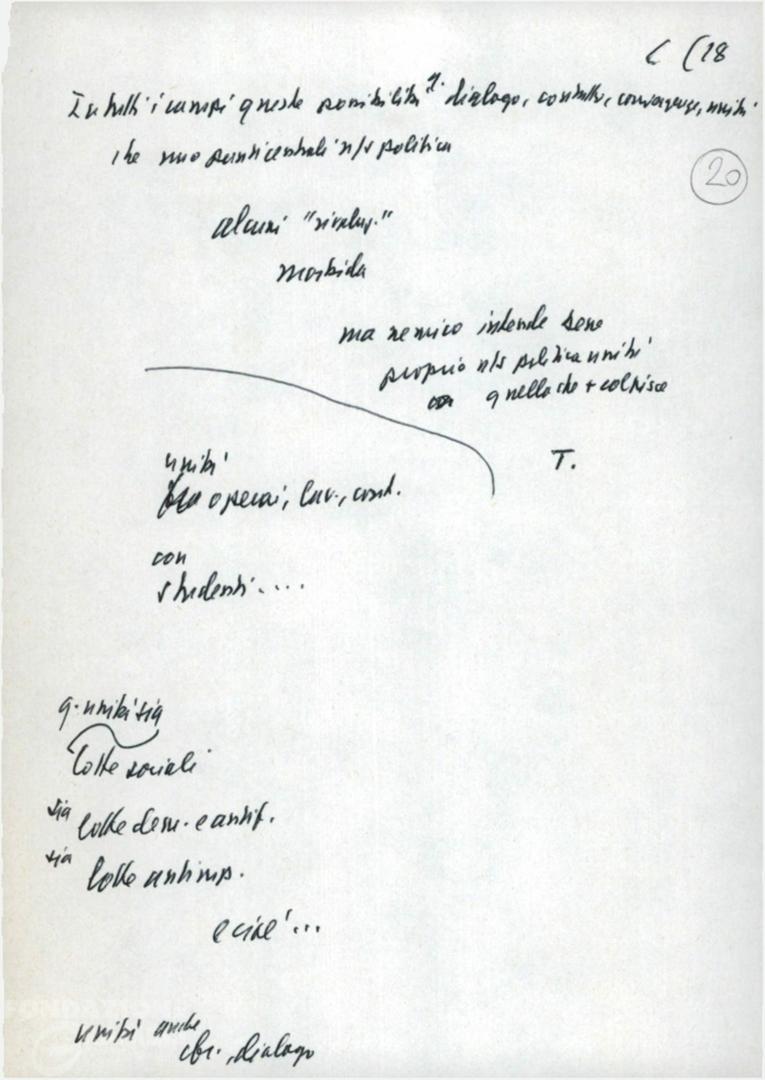 C (18
In tutti i campi queste possibilità di dialogo, contatti, convergenze, unità
che sono punti centrali n/s politica
20
alcuni "rivoluz."
morbida
ma nemico intende bene
proprio n/s politica unità
quella che + colpisce
T.
unità
operai, lav., cont.
con
studenti....
q. unità sia
lotte sociali
sia lotte dem. e antif.
sia lotte antimp.
e cioè...
unità anche
dialogo